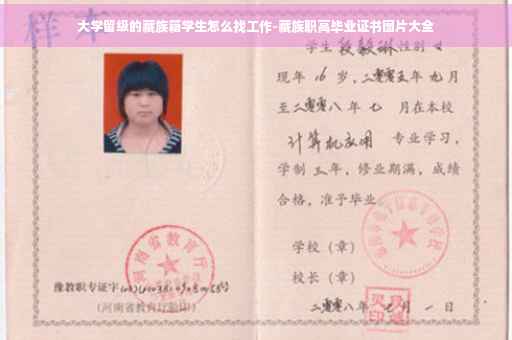 样本
大学留级的藏族籍学生怎么找工作-藏族职高毕业证书图片大全
学生段毅琳性别女
现年16岁，二零零五年九月
至二零零八年七月在本校
计算机应用 专业学习，
学制三年，修业期满，成绩
合格，准予毕业。
学校（章）
校长（章）
二零零八年 月一日
河南省教育厅
豫教职专证字
(河南省教育厅验印)